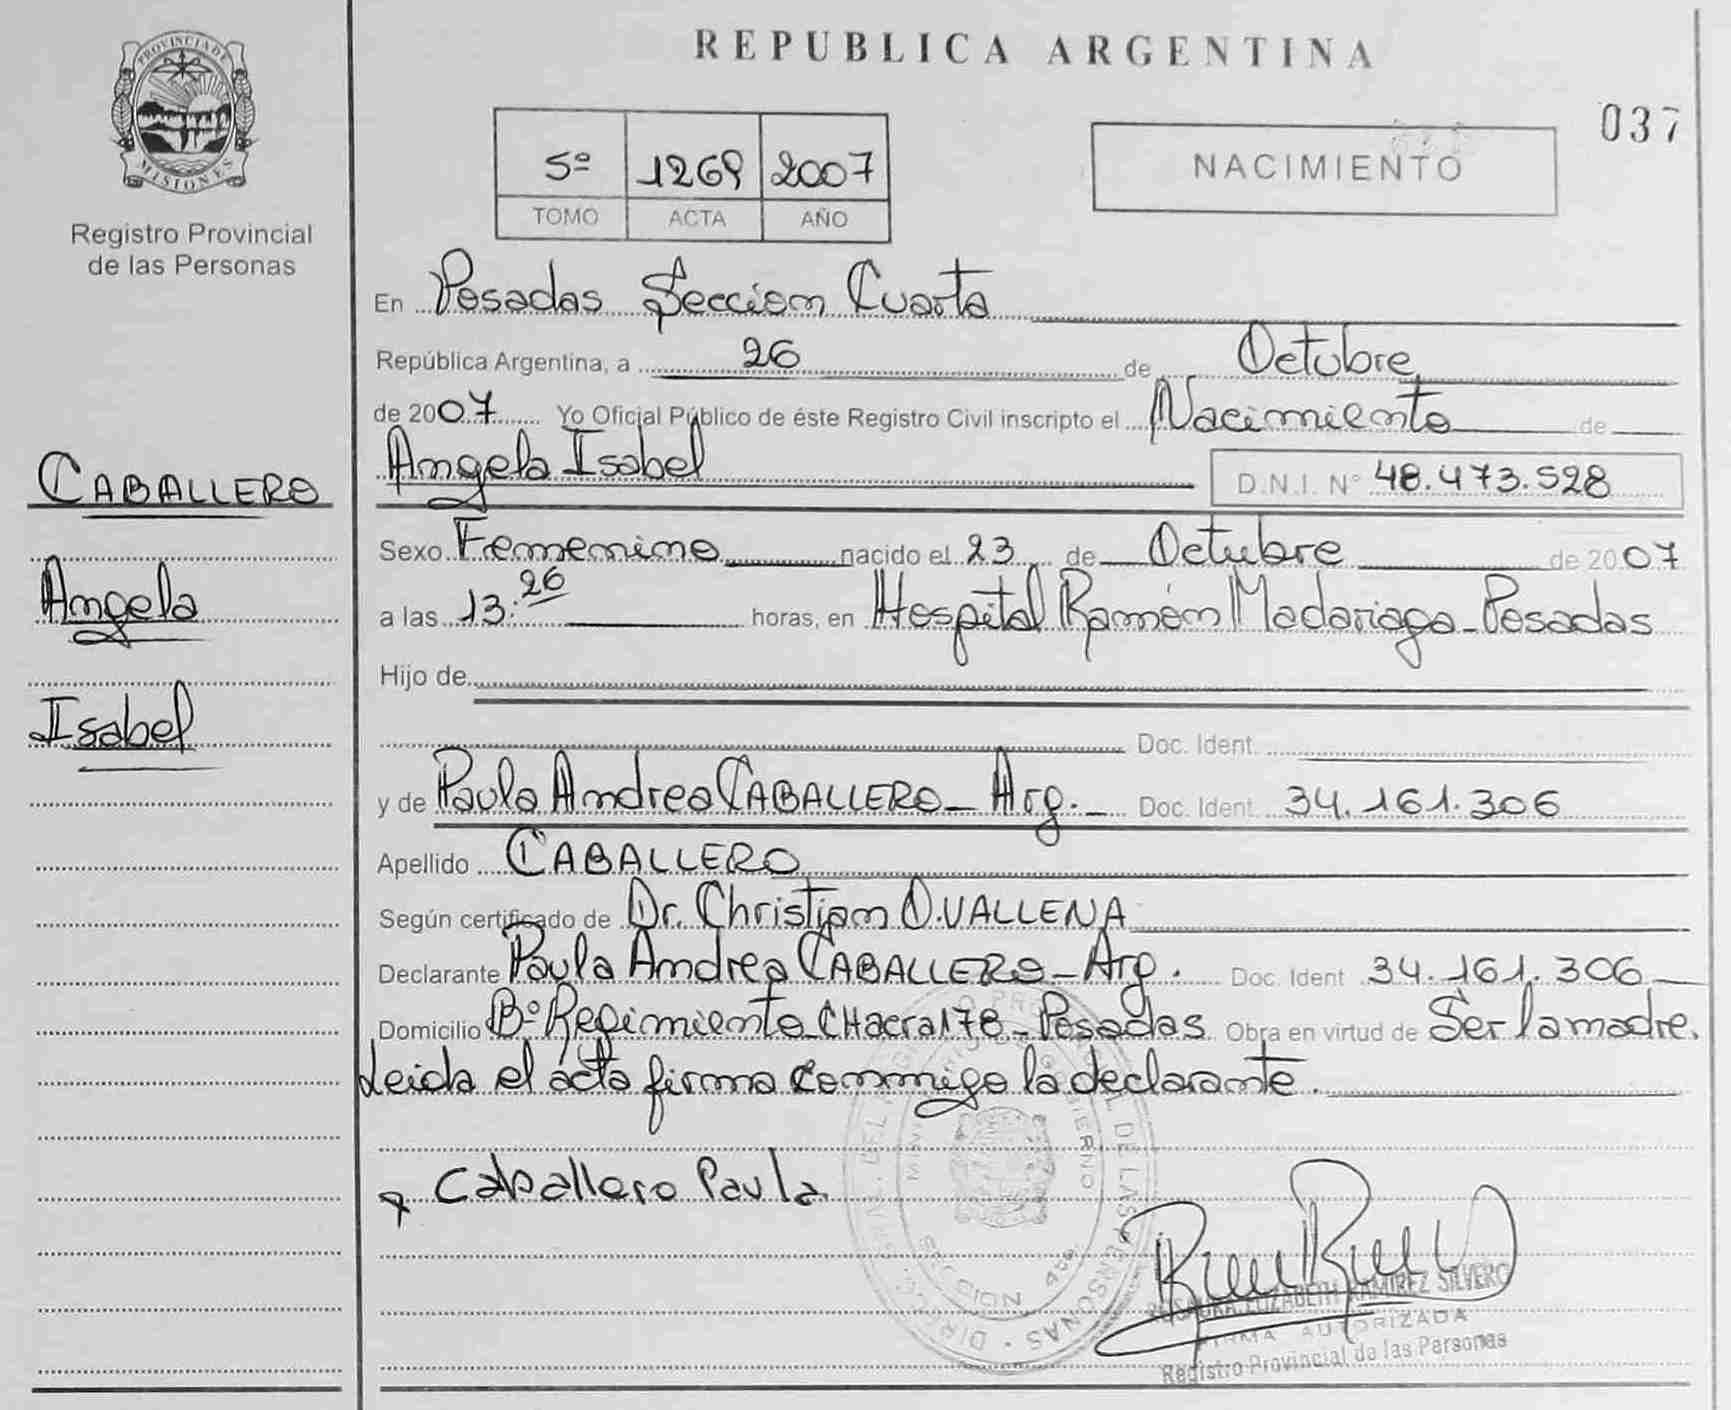 REPUBLICA ARGENTINA
037
PROVINCIA DE
MISIONES
Registro Provincial
de las Personas
5º 1269 2007
TOMO ACTA AÑO
NACIMIENTO
En Posadas Seccion Cuarta
República Argentina, a 26 de Octubre
de 2007 Yo Oficial Público de éste Registro Civil inscripto el Nacimiento de
Angela Isabel D.N.I. Nº 48.473.528
CABALLERO
Angela
Isabel
Sexo Femenino nacido el 23 de Octubre de 2007
a las 13:26 horas, en Hospital Ramón Madariaga - Posadas
Hijo de
Doc. Ident.
y de Paula Andrea CABALLERO - Arg. - Doc. Ident. 34.161.306
Apellido CABALLERO
Según certificado de Dr. Christian O. VALLENA
Declarante Paula Andrea CABALLERO - Arg. Doc. Ident 34.161.306
Domicilio Bº Regimiento CHacra 178 - Posadas Obra en virtud de Ser la madre.
Leida el acta firma conmigo la declarante.
x Caballero Paula
ROSAURA ELIZABETH RAMIREZ SILVERO
FIRMA AUTORIZADA
Registro Provincial de las Personas